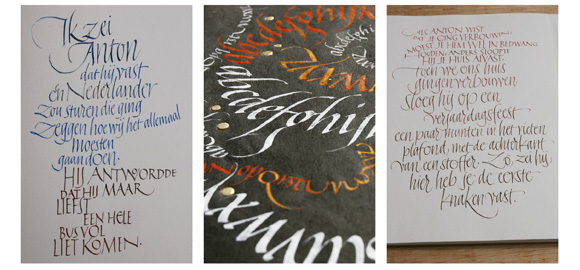 Ik zei
Anton
dat hij vast
én Nederlander
zou sturen die ging
zeggen hoe wij het allemaal
moesten
gaan doen.
HIJ ANTWOORDDE
DAT HIJ MAAR
LIEFST
EEN HELE
BUS VOL
LIET KOMEN.
abcdefghijk
abcdefghijk
ALS ANTON WIST
DAT JE GING VERBOUWEN,
MOEST JE HEM WEL IN BEDWANG
HOUDEN: ANDERS SLOOPTE
HIJ JE HUIS ALVAST.
Toen we ons huis
gingen verbouwen
sloeg hij op een
verjaardagsfeest
een paar munten in het rieten
plafond, met de achterkant
van een stoffer. Zo, zei hij,
hier heb je de eerste
knaken vast.